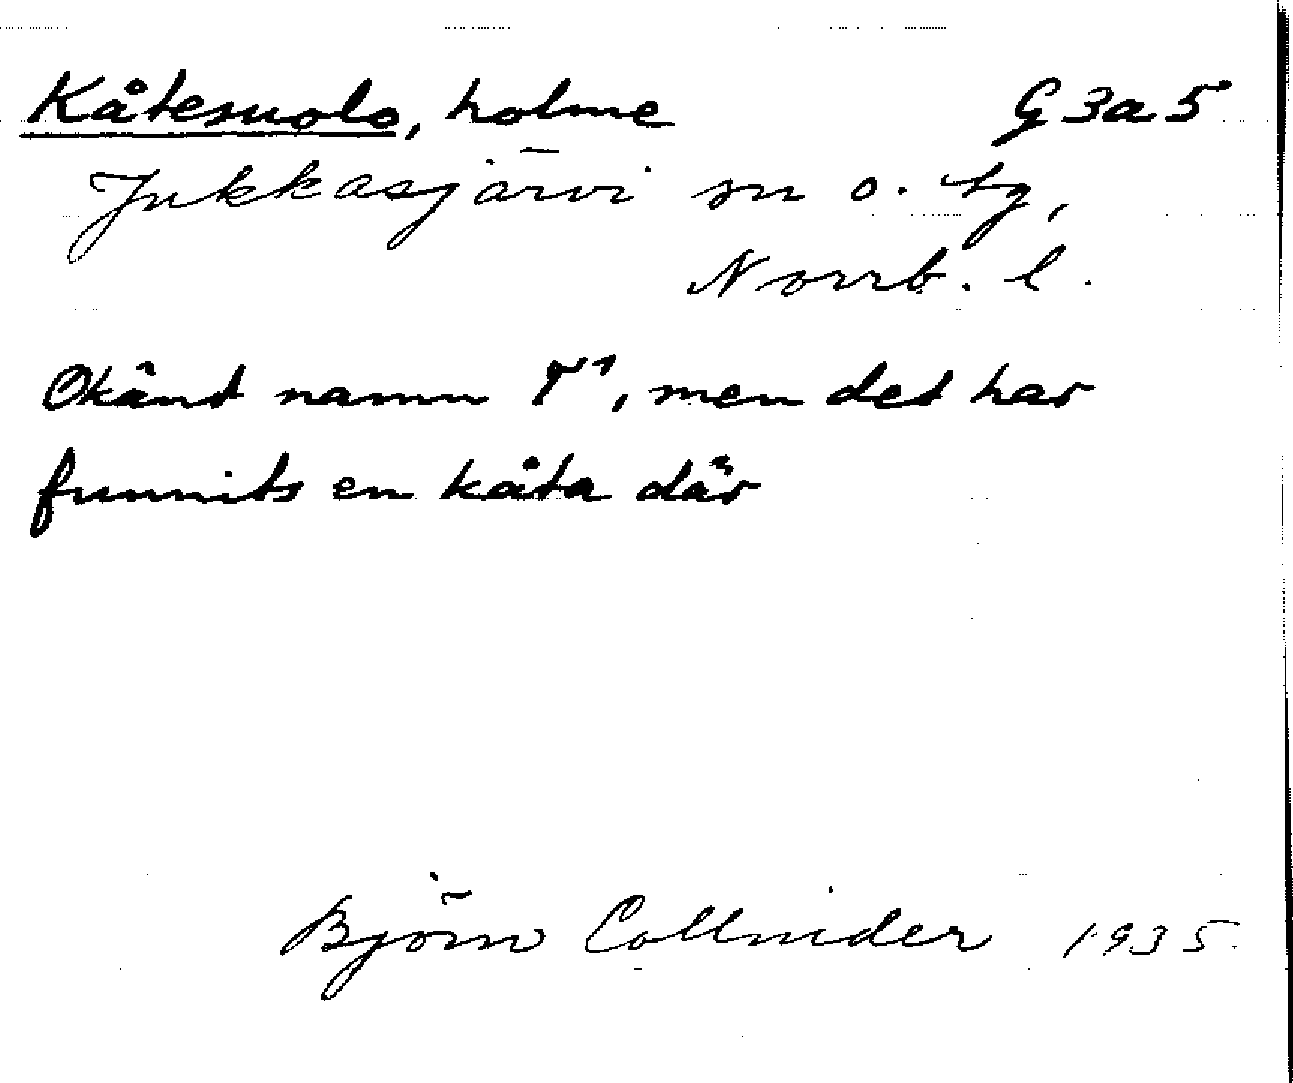 Kåtesuolo, holme G 3a 5
Jukkasjärvi sn o. tg,
Norrb. l.
Okänt namn T¹, men det har
funnits en kåta där
Björn Collinder 1935